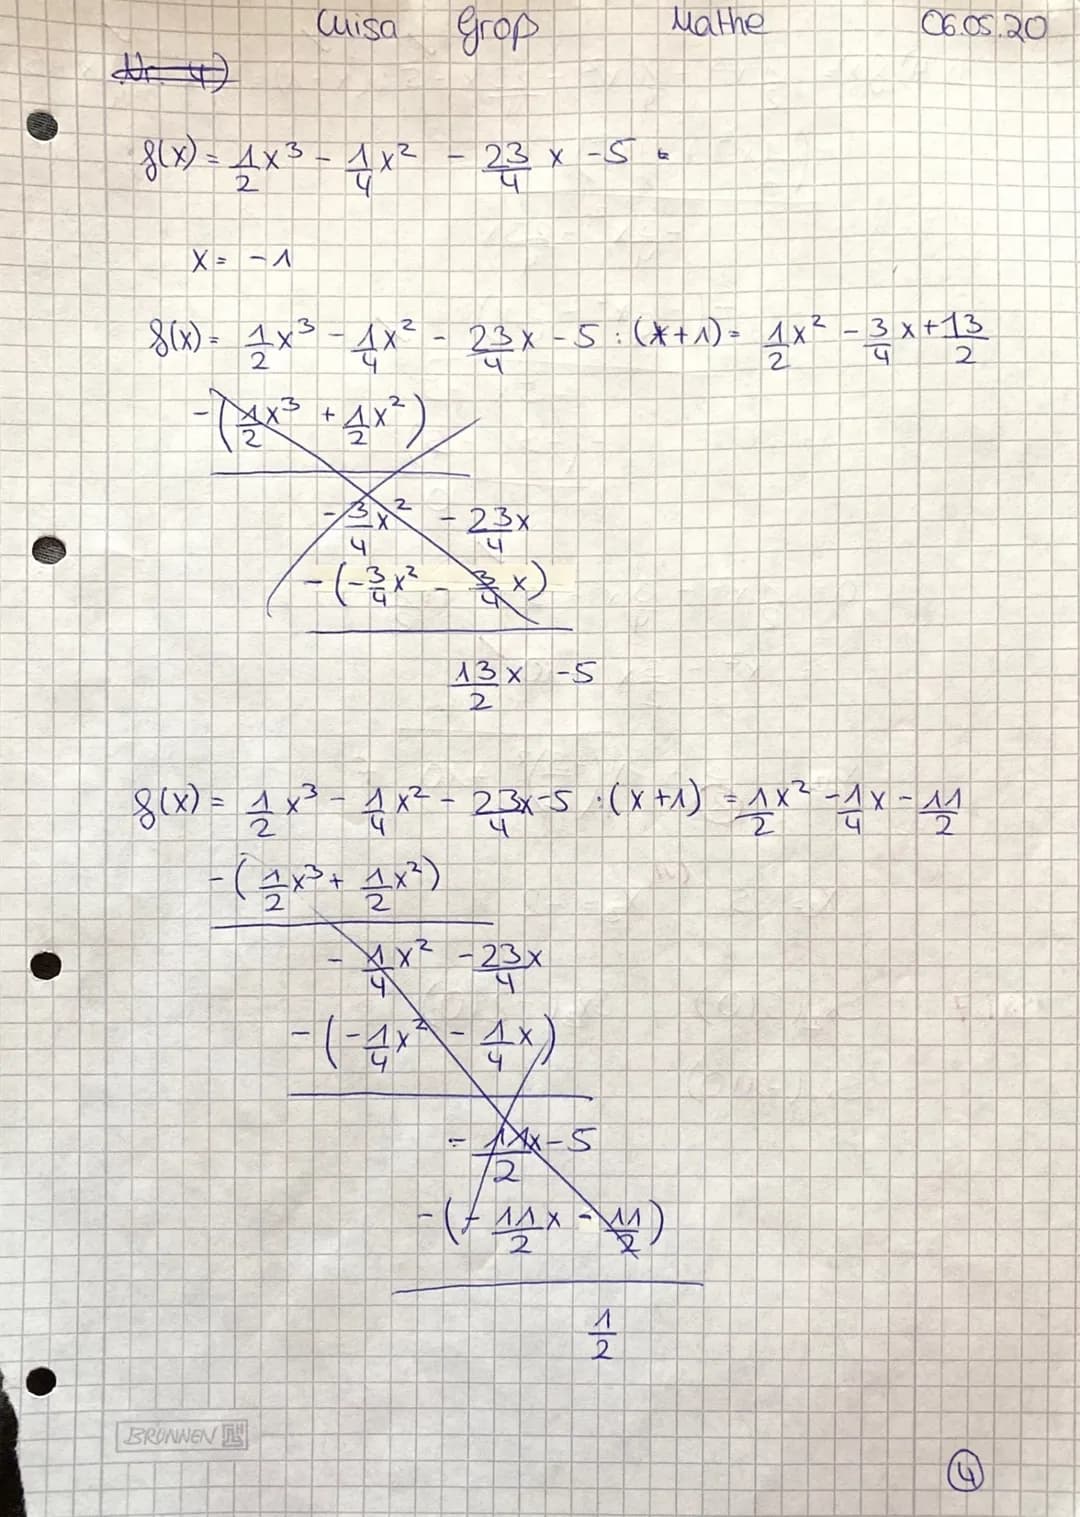 Luisa Groß Mathe 06.05.20
Nr. 4)
f(x) = 1/2 x³ - 1/4 x² - 23/4 x - 5
x = -1
f(x) = 1/2 x³ - 1/4 x² - 23/4 x - 5 : (x+1) = 1/2 x² - 3/4 x + 13/2
-(1/2 x³ + 1/2 x²)
- 3/4 x² - 23/4 x
-(-3/4 x² - 3/4 x)
13/2 x - 5
f(x) = 1/2 x³ - 1/4 x² - 23/4 x - 5 : (x+1) = 1/2 x² - 1/4 x - 11/2
-(1/2 x³ + 1/2 x²)
- 1/4 x² - 23/4 x
-(-1/4 x² - 1/4 x)
- 11/2 x - 5
-(- 11/2 x - 11/2)
1/2
BRUNNEN
4